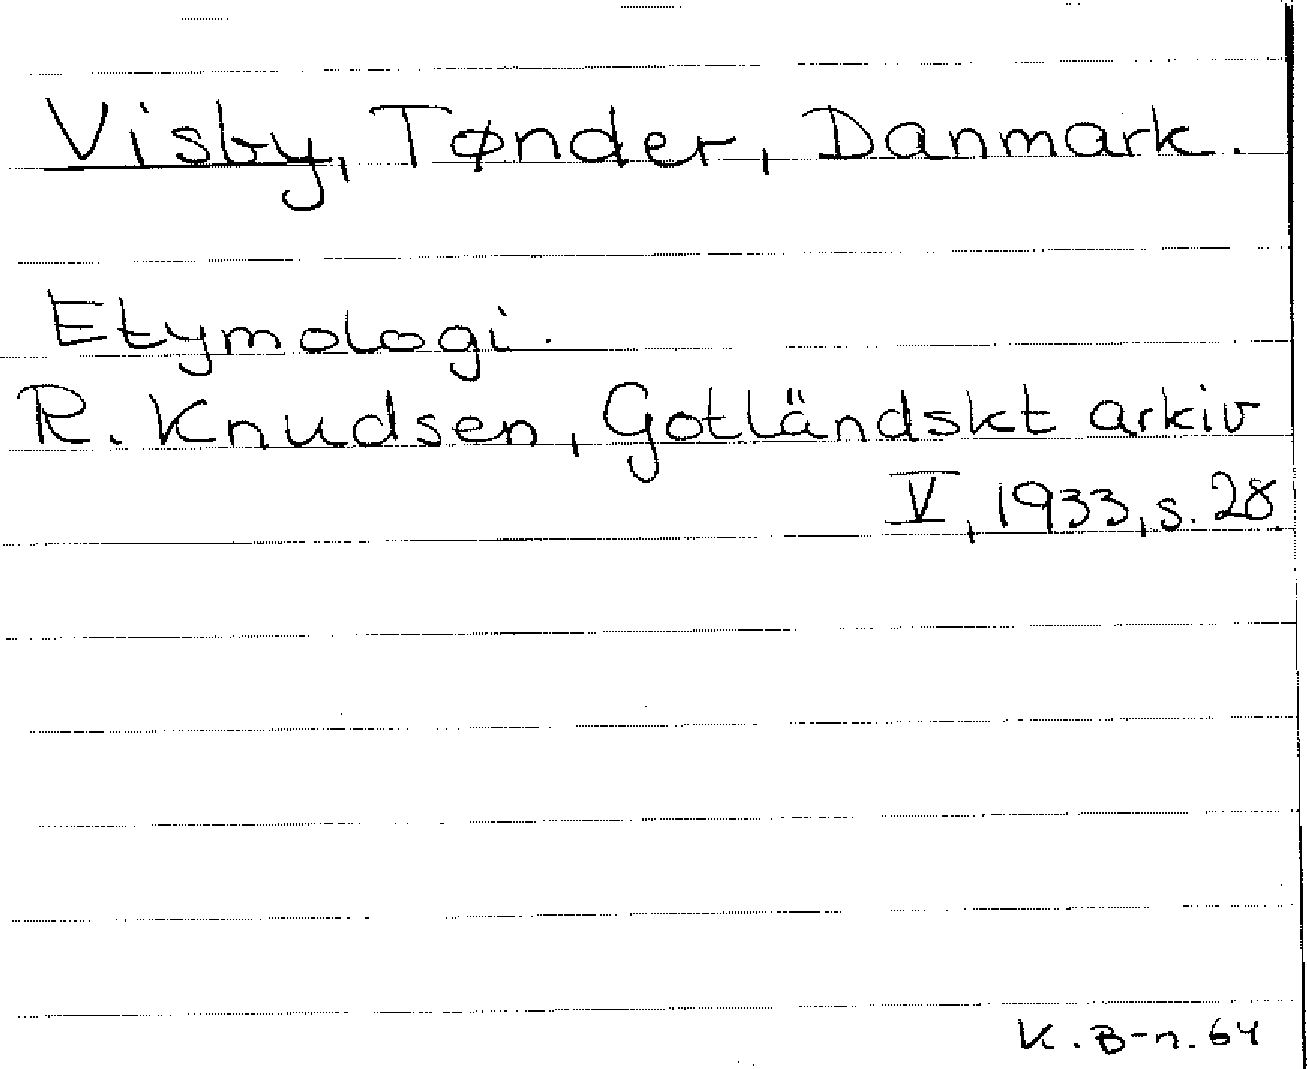 Visby, Tønder, Danmark.
Etymologi.
R. Knudsen, Gotländskt arkiv
V, 1933, s. 28.
K. B-n. 64